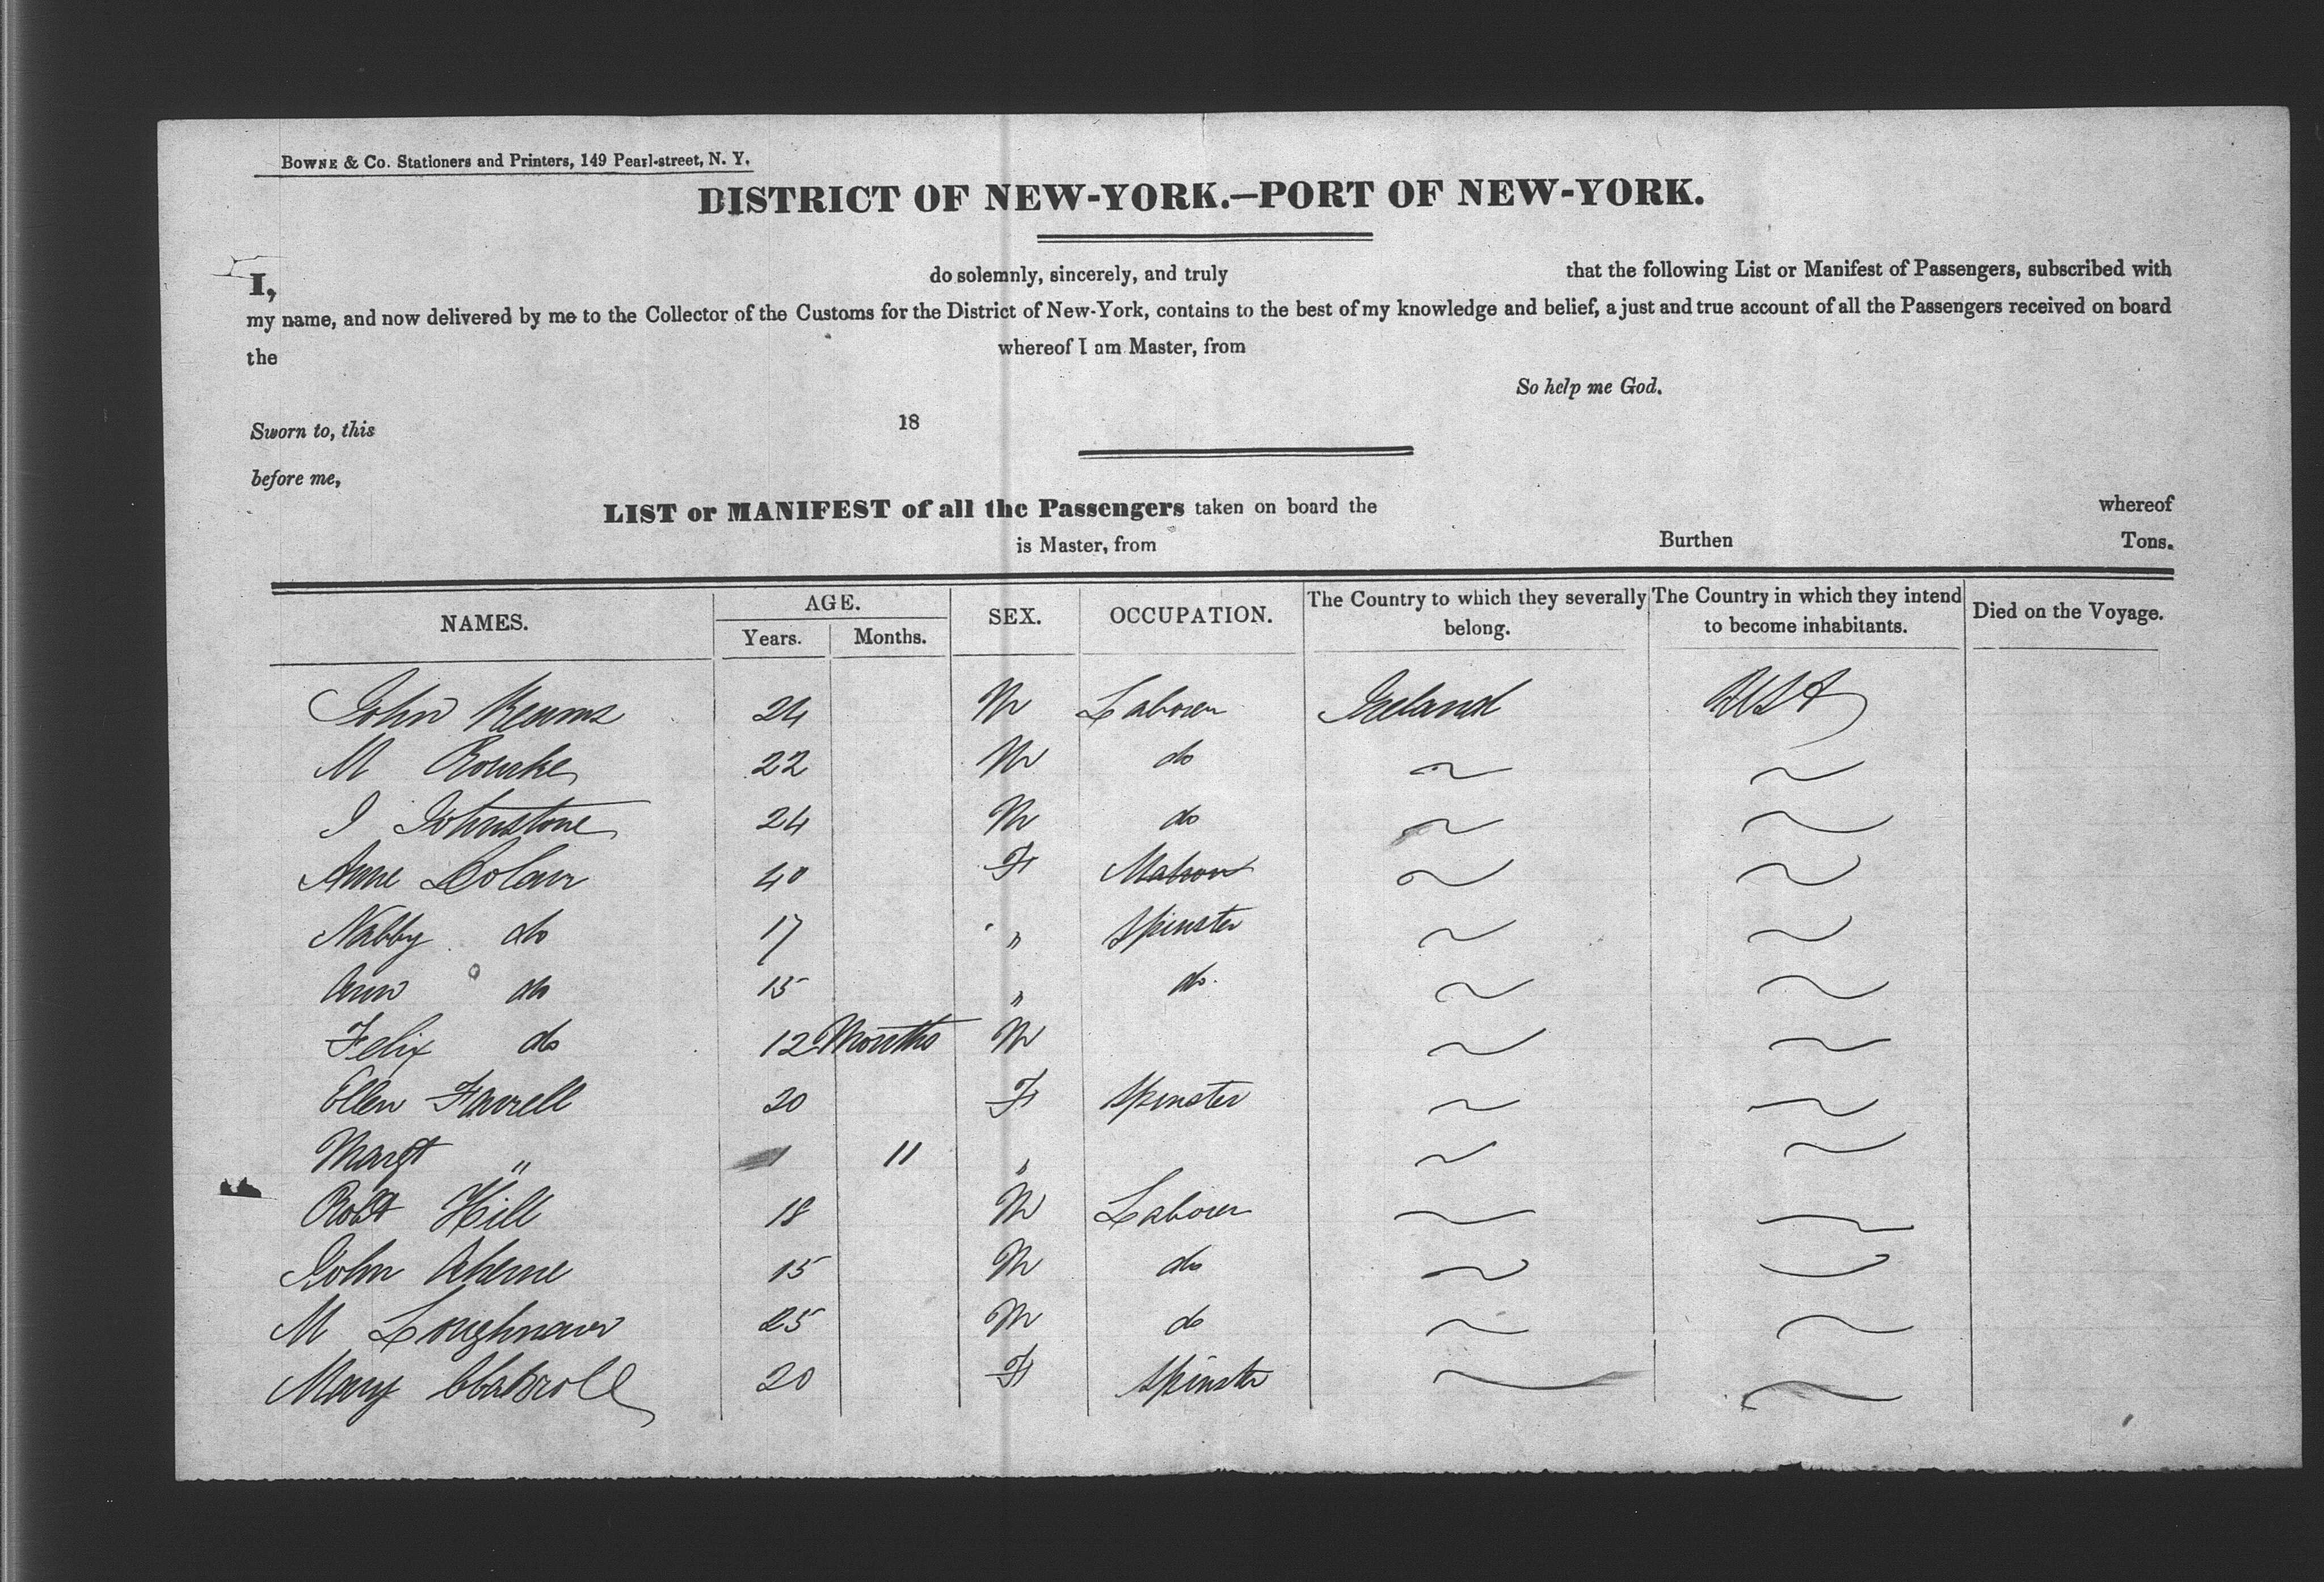 BOWNE & CO. Stationers and Printers, 149 Pearl-street, N. Y.
DISTRICT OF NEW-YORK.—PORT OF NEW-YORK.
I, do solemnly, sincerely, and truly that the following List or Manifest of Passengers, subscribed with
my name, and now delivered by me to the Collector of the Customs for the District of New-York, contains to the best of my knowledge and belief, a just and true account of all the Passengers received on board
the whereof I am Master, from
So help me God.
Sworn to, this 18
before me,
LIST or MANIFEST of all the Passengers taken on board the whereof
is Master, from Burthen Tons.
NAMES. AGE. Years. Months. SEX. OCCUPATION. The Country to which they severally belong. The Country in which they intend to become inhabitants. Died on the Voyage.
John 24 M Laborer Ireland USA
M Rourke 22 M do
J Johnstone 24 M do
Anne Dolan 40 F Matron
Nabby do 17 " Spinster
Ann do 15 " do
Felix do 12 Months M
Ellen Farrell 20 F Spinster
Margt " 11 "
Robt Hill 18 M Laborer
John Aherne 15 M do
M Loughnan 25 M do
Mary 20 F Spinster